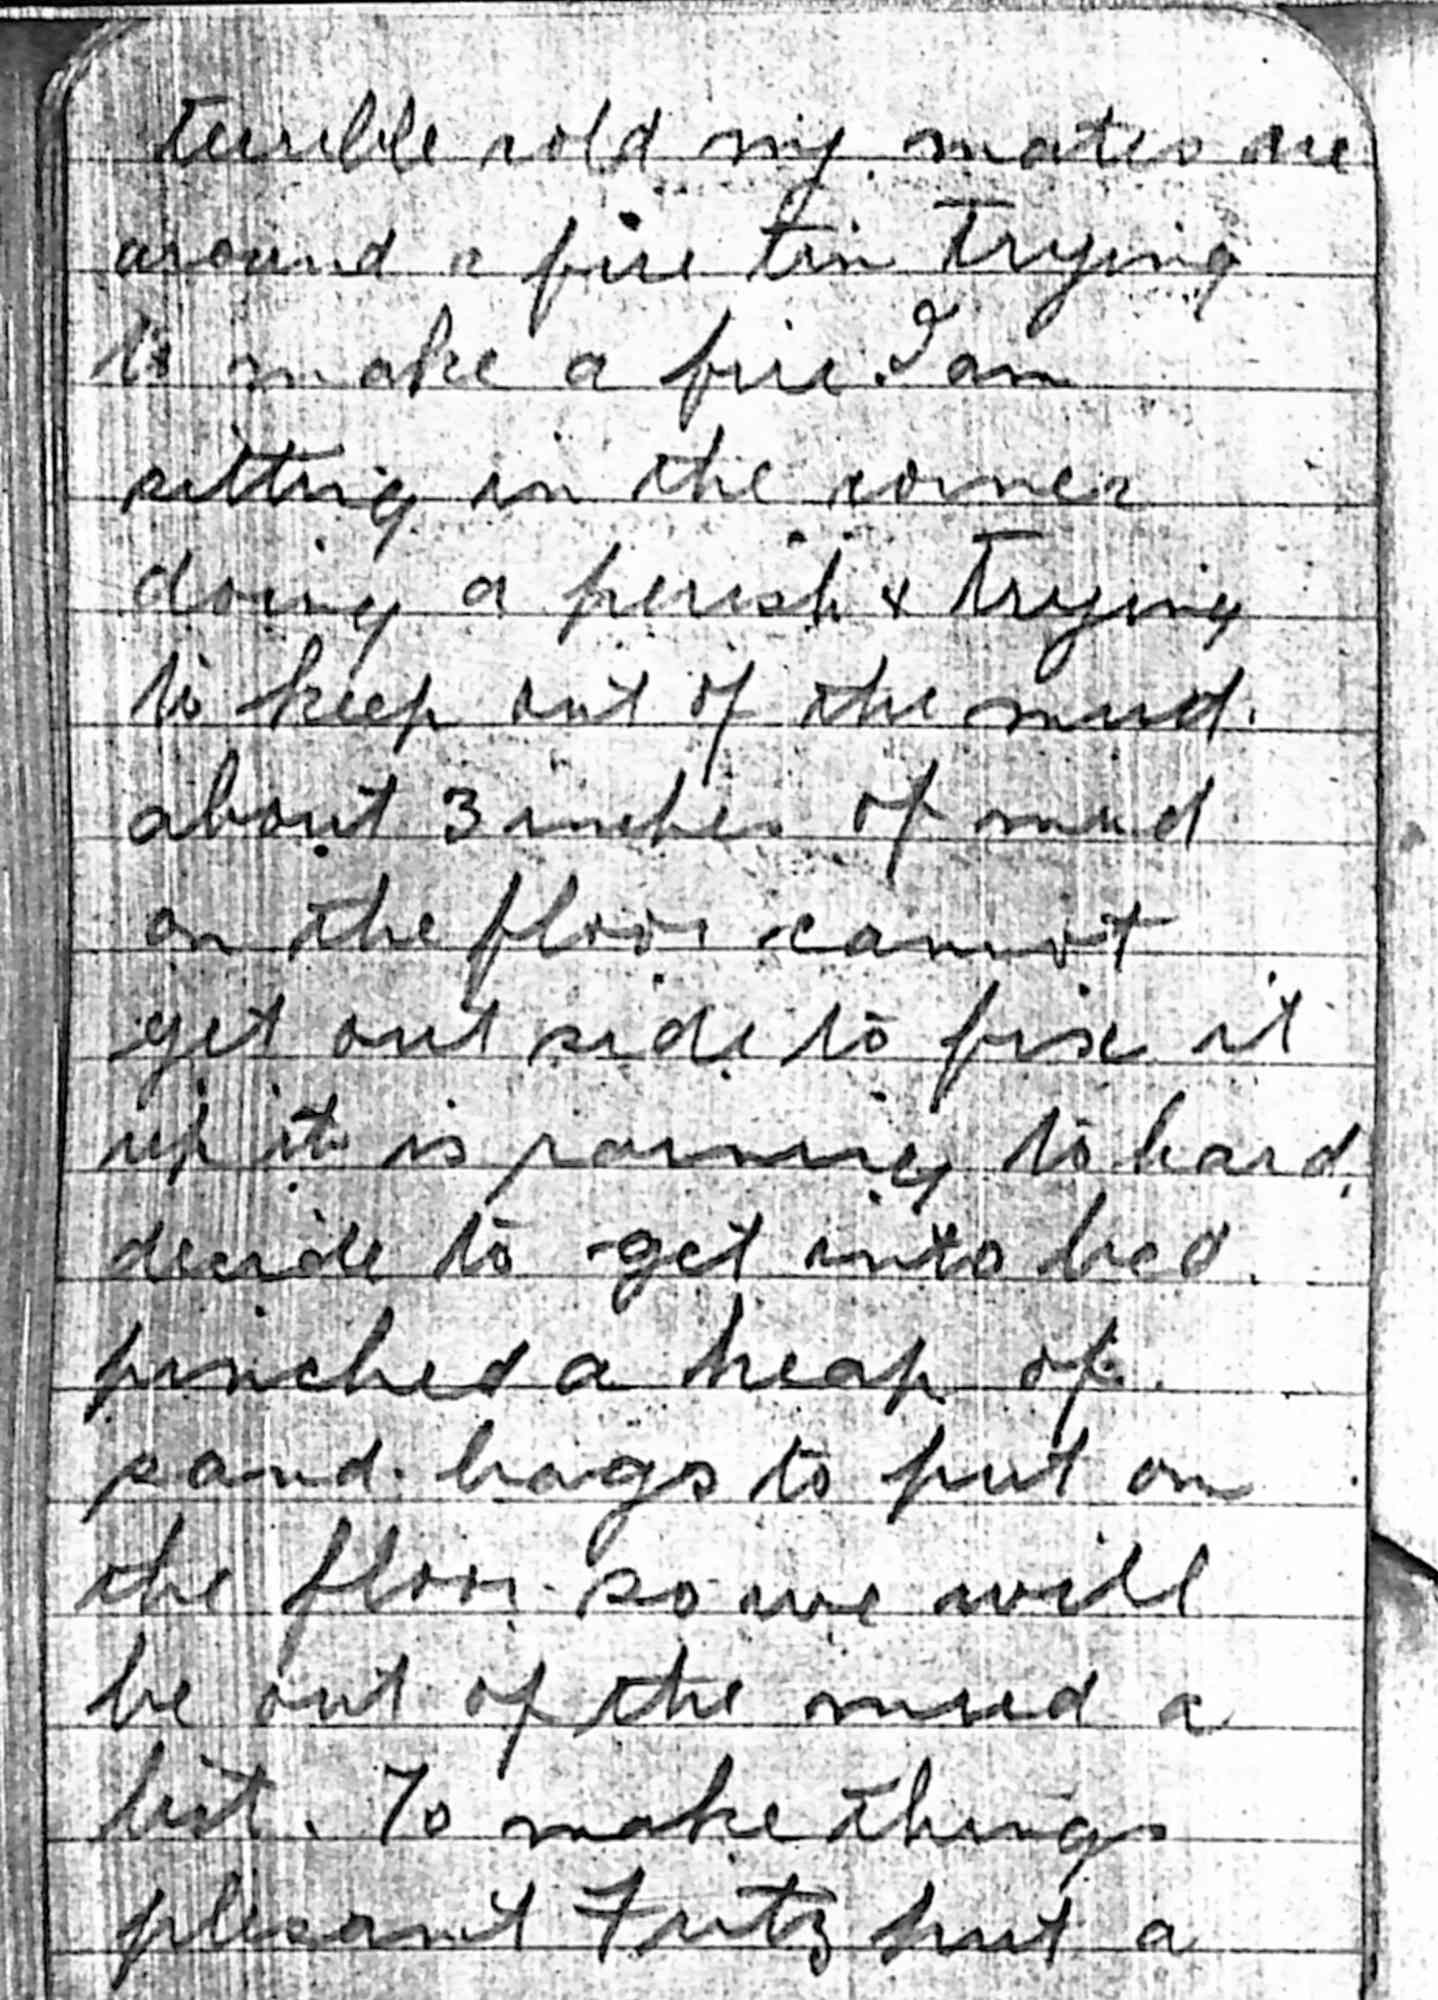 terrible cold my mates are
around a fire tin trying
to make a fire. I am
sitting in the corner
doing a perish & trying
to keep out of the mud.
about 3 inches of mud
on the floor cannot
get out side to fix it
up it is raining to hard,
decide to get into bed.
pinched a heap of
sand bags to put on
the floor so we will
be out of the mud a
bit. To make things
plesant Fritz put a